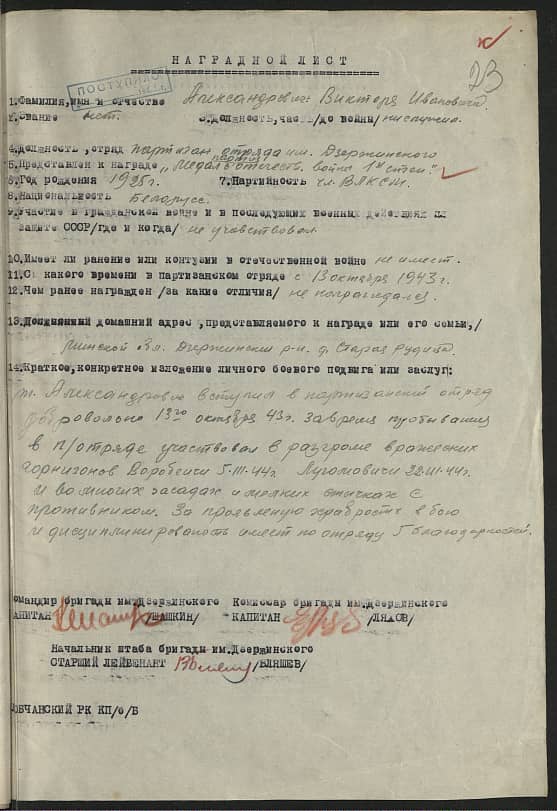 73
НАГРАДНОЙ ЛИСТ
ПОСТУПИЛО
1.Фамилия,имя и отчество Александрович Виктора Ивановича
2.Звание 3.Должность,часть/до войны/ не служил.
4.Должность,отряд партизан отряда им. Дзержинского
5.Представлен к награде „Медаль партиз. отечеств. войны 1й степ."
6.Год рождения 1925г. 7.Партийность чл. ВЛКСМ.
8.Национальность белорусс.
9.Участие в гражданской войне и в последующих военных действиях по
защите СССР/где и когда/ не учавствовал
10.Имеет ли ранение или контузии в отечественной войне не имеет.
11.С какого времени в партизанском отряде с 13 октября 1943г.
12.Чем ранее награжден /за какие отличия/ не награждался.
13. домашний адрес,представляемого к награде или его семьи,/
Минской обл. Дзержинский р-н д. Старая Рудица.
14.Краткое,конкретное изложение личного боевого подвига или заслуг:
т. Александрович вступил в партизанский отряд
добровольно 13го октября 43г. За время пребывания
в п/отряде участвовал в разгроме вражеских
горнизонов Воробеиси 5.III.44г. Лугомовичи 22.III.44г.
и во многих засадах и мелких стычках с
противником. За проявленую храбрость в бою
и дисциплинированость имеет по отряду 5 благодарностей.
омандир бригады им.Дзержинского Комиссар бригады им.Дзержинского
АПИТАН /ШАШКИН/ КАПИТАН /ЛЯХОВ/
Начальник штаба бригады им.Дзержинского
СТАРШИЙ ЛЕЙТЕНАНТ /ВЛЯШЕВ/
ОБЧАНСКИЙ РК КП/б/Б